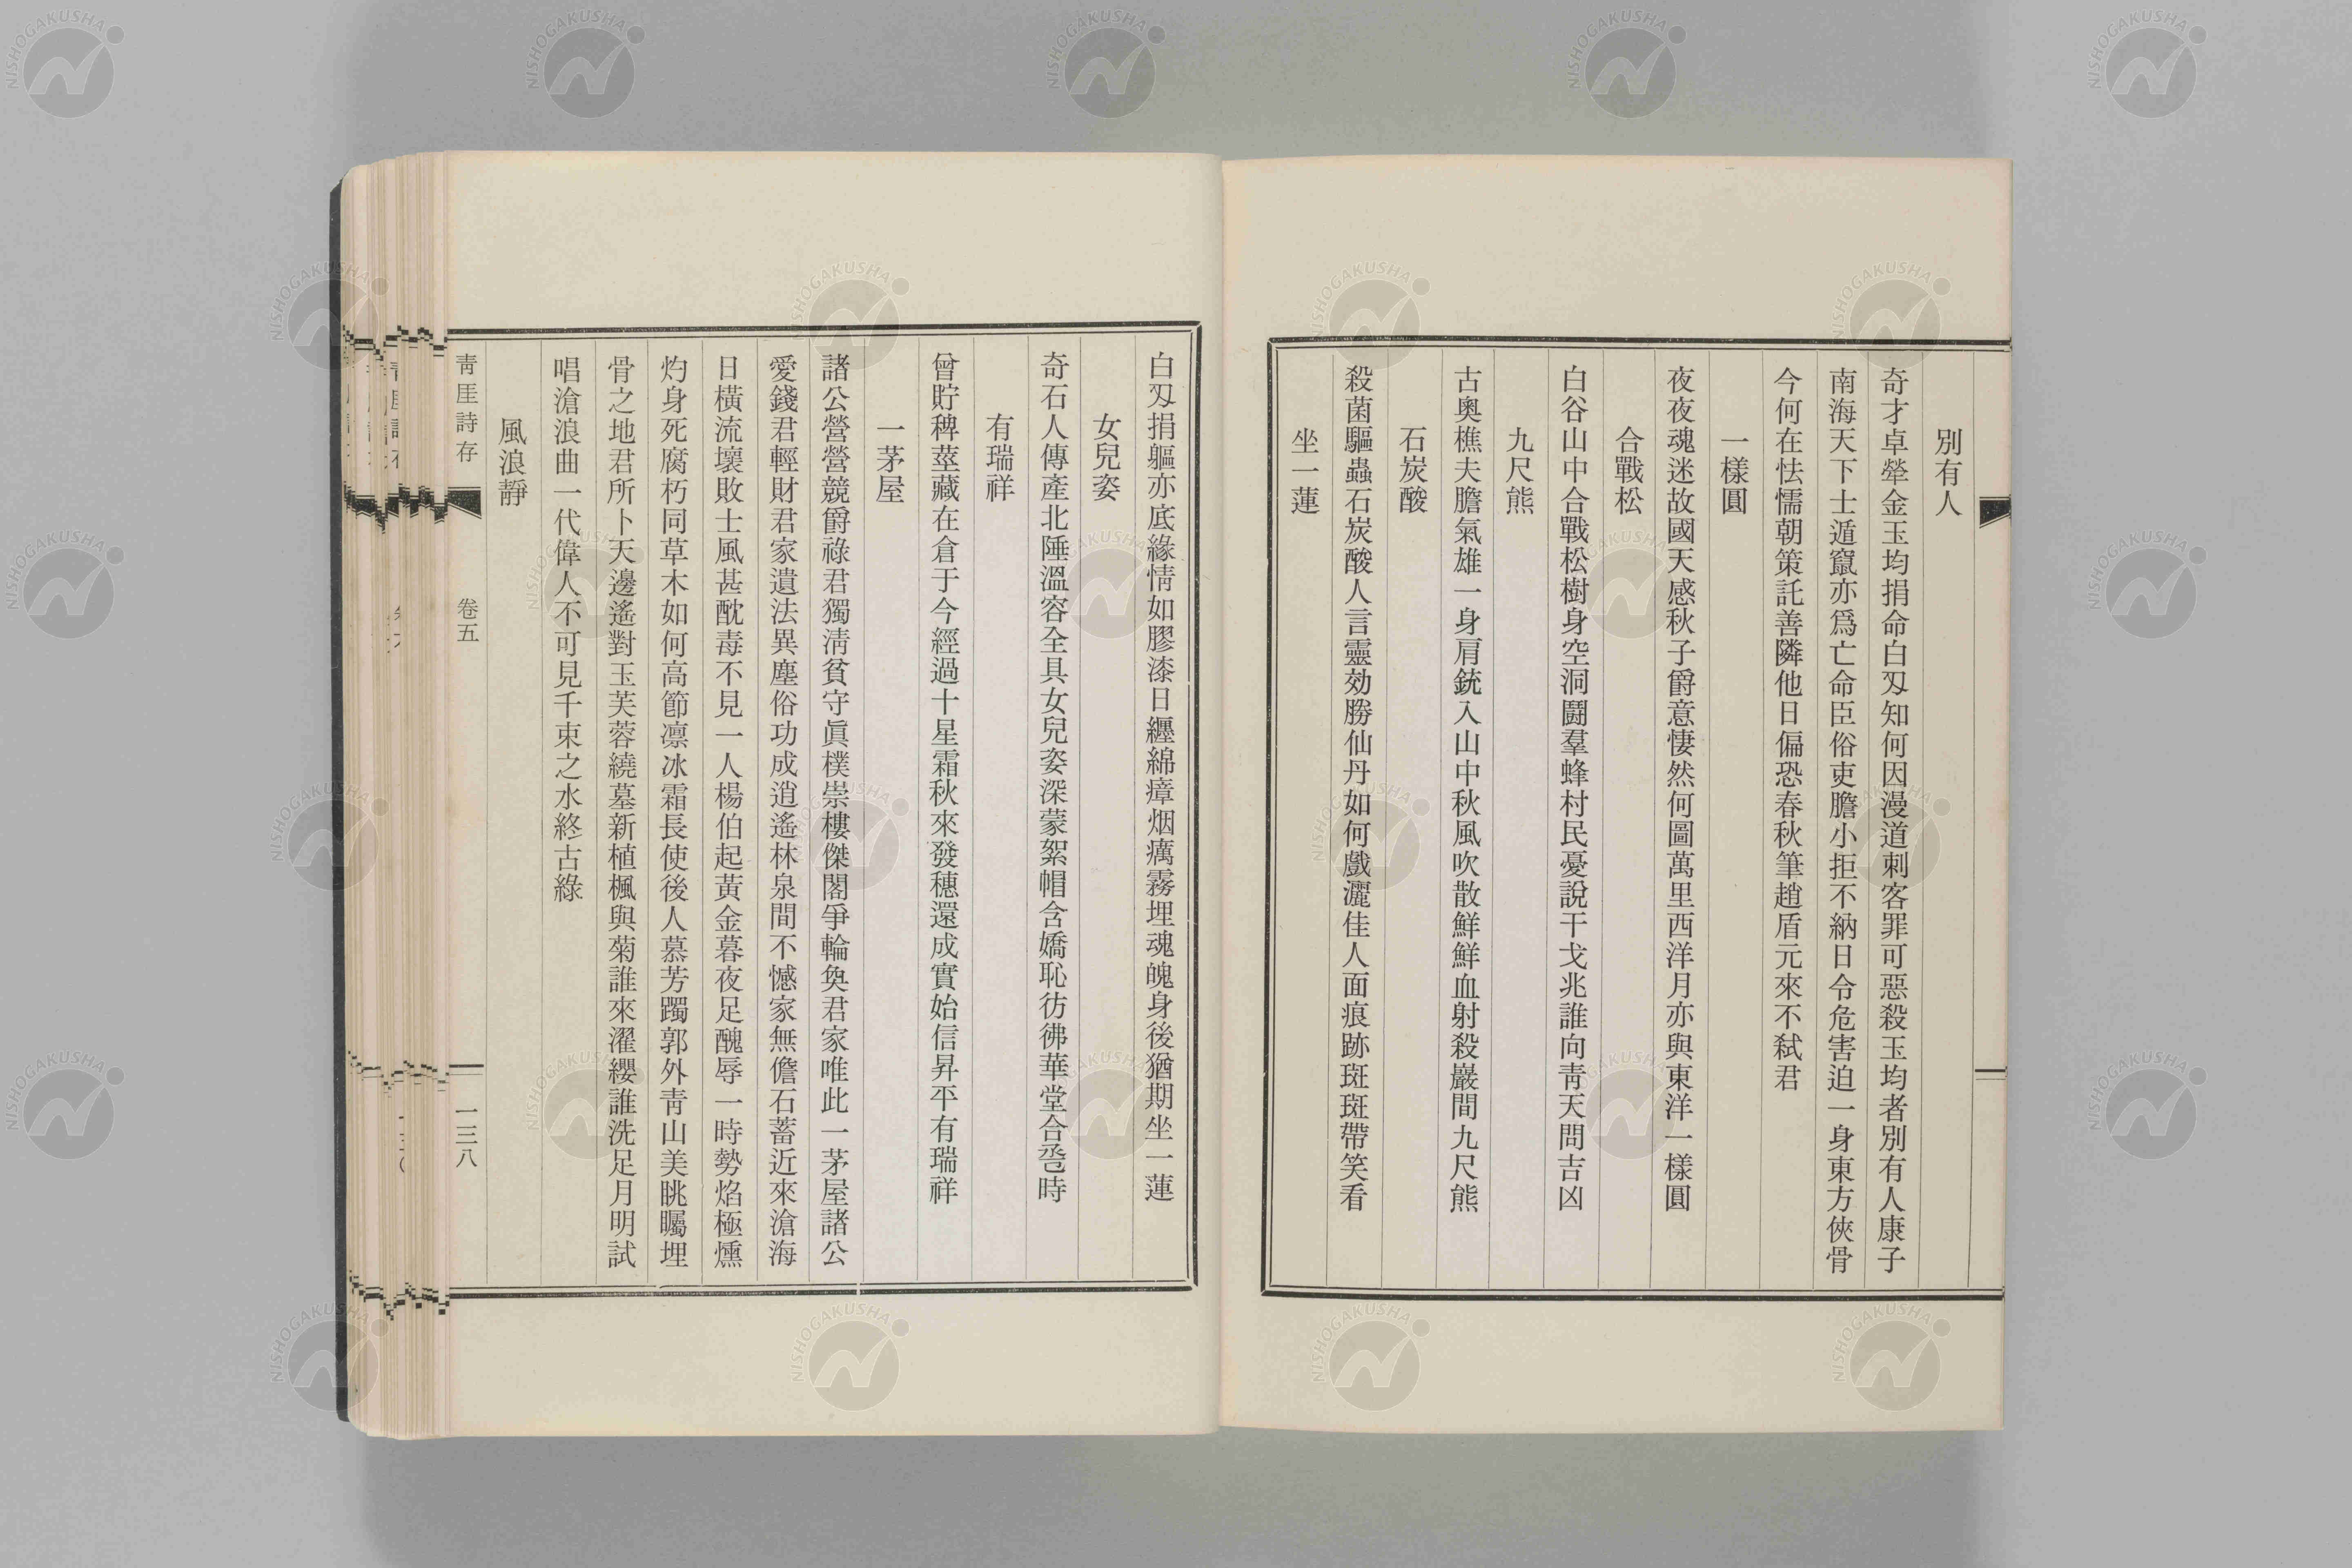 別有人
奇才卓犖金玉均捐命白刄知何因漫道刺客罪可惡殺玉均者別有人康子
南海天下士遁竄亦爲亡命臣俗吏膽小拒不納日令危害迫一身東方俠骨
今何在怯懦朝策託善隣他日偏恐春秋筆趙盾元來不弑君
一樣圓
夜夜魂迷故國天感秋子爵意悽然何圖萬里西洋月亦與東洋一樣圓
合戰松
白谷山中合戰松樹身空洞鬪羣蜂村民憂說干戈兆誰向靑天問吉凶
九尺熊
古奧樵夫膽氣雄一身肩銃入山中秋風吹散鮮鮮血射殺巖間九尺熊
石炭酸
殺菌驅蟲石炭酸人言靈効勝仙丹如何戲灑佳人面痕跡斑斑帶笑看
坐一蓮
白刄捐軀亦底緣情如膠漆日纒綿瘴烟癘霧埋魂魄身後猶期坐一蓮
女兒姿
奇石人傳產北陲溫容全具女兒姿深蒙絮帽含嬌恥彷彿華堂合巹時
有瑞祥
曾貯稗莖藏在倉于今經過十星霜秋來發穗還成實始信昇平有瑞祥
一茅屋
諸公營營競爵祿君獨淸貧守眞樸崇樓傑閣爭輪奐君家唯此一茅屋諸公
愛錢君輕財君家遺法異塵俗功成逍遙林泉間不憾家無儋石蓄近來滄海
日橫流壞敗士風甚酖毒不見一人楊伯起黃金暮夜足醜辱一時勢焰極燻
灼身死腐朽同草木如何高節凛冰霜長使後人慕芳躅郭外靑山美眺矚埋
骨之地君所卜天邊遙對玉芙蓉繞墓新植楓與菊誰來濯纓誰洗足月明試
唱滄浪曲一代偉人不可見千束之水終古綠
風浪靜
靑厓詩存 卷五 一三八